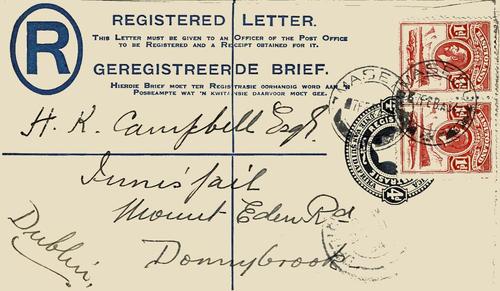 R
REGISTERED LETTER.
THIS LETTER MUST BE GIVEN TO AN OFFICER OF THE POST OFFICE
TO BE REGISTERED AND A RECEIPT OBTAINED FOR IT.
GEREGISTREERDE BRIEF.
HIERDIE BRIEF MOET TER REGISTRASIE OORHANDIG WORD AAN
POSBEAMPTE WAT 'N KWITANSIE DAARVOOR MOET GEE.
H. K. Campbell Esqr.
Innisfail
Mount Eden Rd
Donnybrook
Dublin.
1D.
1D.
4D